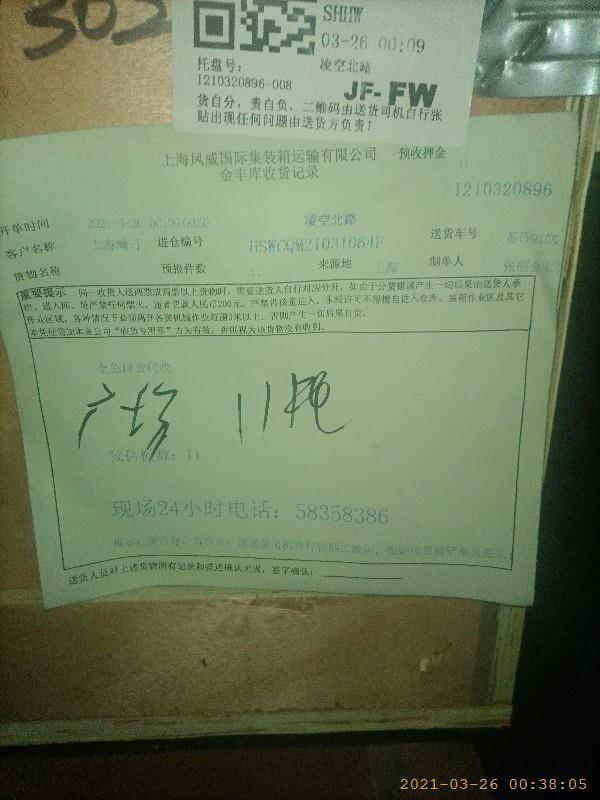 502
SHHW
03-26 00:09
托盘号: 凌空北路
I210320896-008
JF-FW
货自分，责自负，二维码由送货司机自行张
贴出现任何问题由送货方负责！
上海风威国际集装箱运输有限公司 预收押金
金丰库收货记录 0
I210320896
开单时间 2021-3-26 00:09 凌空北路
客户名称 上海 进仓编号 HSWCQM21031064F 送货车号
货物名称 预报件数 11 来源地 上海 制单人
重要提示 同一收货人送两票或两票以上货物时，需要送货人自行对应分开，如由于分货错误产生一切后果由送货人承
担。进入库、场严禁任何烟火，违者罚款人民币200元。严禁带孩童进入，未经许可不得擅自进入仓库、装箱作业区及其它
作业区域，各种情况下必须离开各类机械作业范围5米以上，否则产生一切后果自负。
本凭证需加本公司“收货专用章”方为有效，否则视为该货物没有收到。
广场 11托
预估板数：11
现场24小时电话：58358386
提示：货自分，责自负，需送货司机自行张贴二维码，
送货人员对上述货物所有记录和描述确认无误，签字确认：
2021-03-26 00:38:05